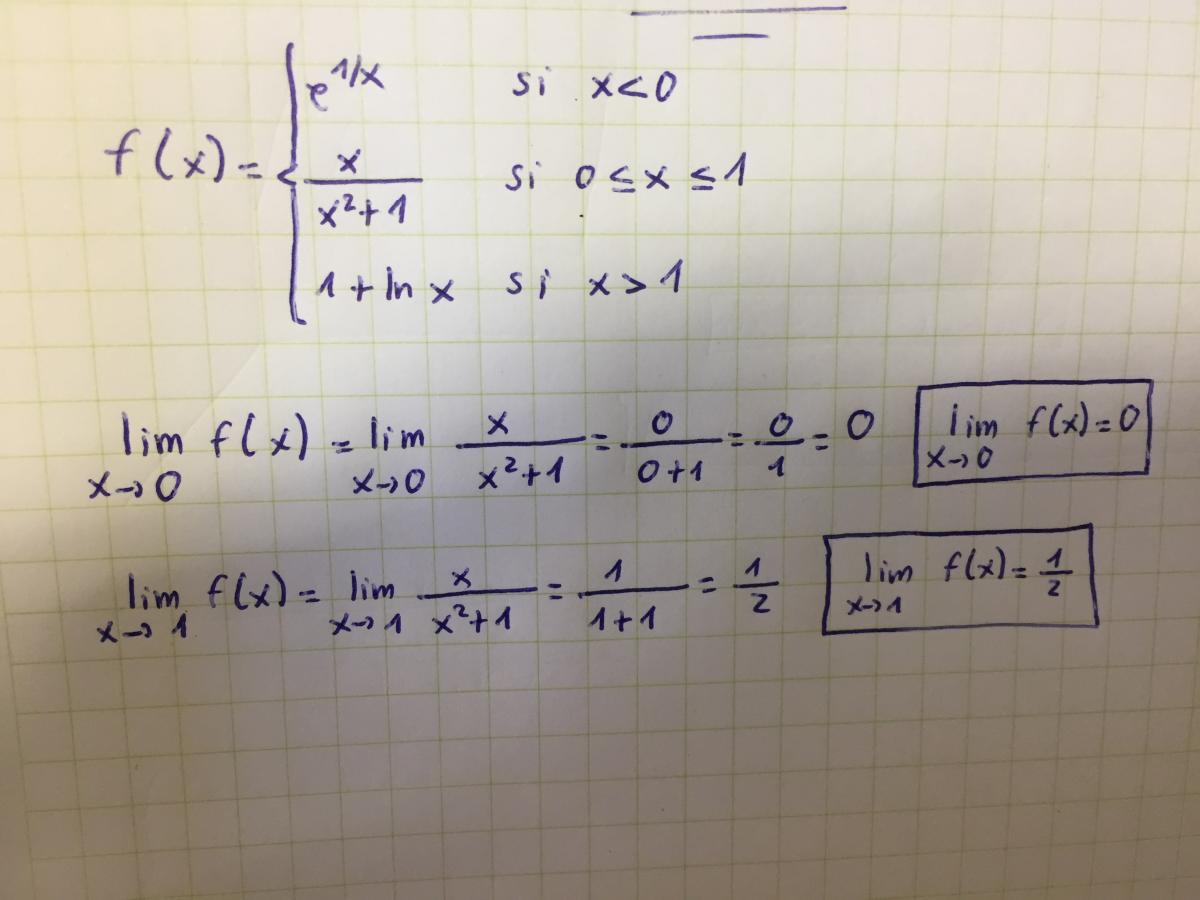 f(x) = { e^1/x si x<0
x/(x²+1) si 0 ≤ x ≤ 1
1 + ln x si x > 1
lim x→0 f(x) = lim x→0 x/(x²+1) = 0/(0+1) = 0/1 = 0 lim x→0 f(x) = 0
lim x→1 f(x) = lim x→1 x/(x²+1) = 1/(1+1) = 1/2 lim x→1 f(x) = 1/2